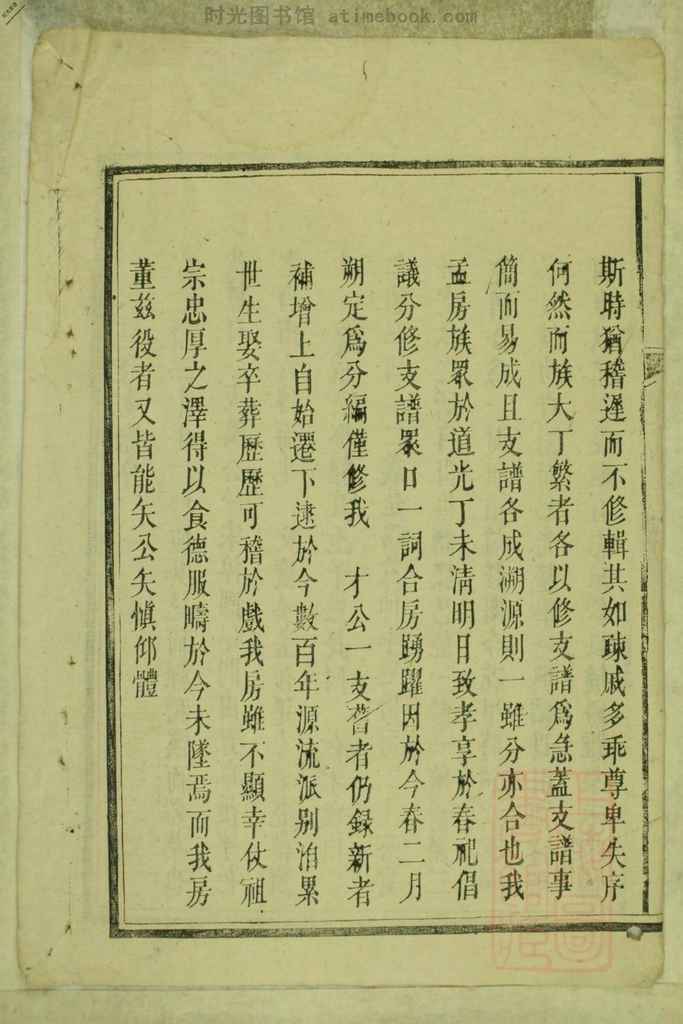 时光图书馆 atimebook.com
斯時猶稽遲而不修輯其如踈戚多乖尊卑失序
何然而族大丁繁者各以修支譜爲急蓋支譜事
簡而易成且支譜各成溯源則一雖分亦合也我
孟房族眾於道光丁未清明日致孝享於春祀倡
議分修支譜眾口一詞合房踴躍因於今春二月
朔定爲分編僅修我 才公一支舊者仍録新者
補增上自始遷下逮於今數百年源流派别洎累
世生娶卒葬歷歷可稽於戲我房雖不顯幸仗祖
宗忠厚之澤得以食德服疇於今未墜焉而我房
董兹役者又皆能矢公矢慎仰體